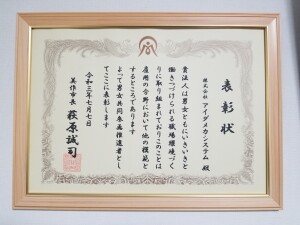 表彰状
株式会社 アイダメカシステム 殿
貴法人は男女ともにいきいきと
働きつづけられる職場環境づく
りに取り組まれておりこのことは
雇用の分野において他の模範と
するところであります
よって男女共同参画推進者とし
てここに表彰します
令和三年七月七日
美作市長 萩原誠司